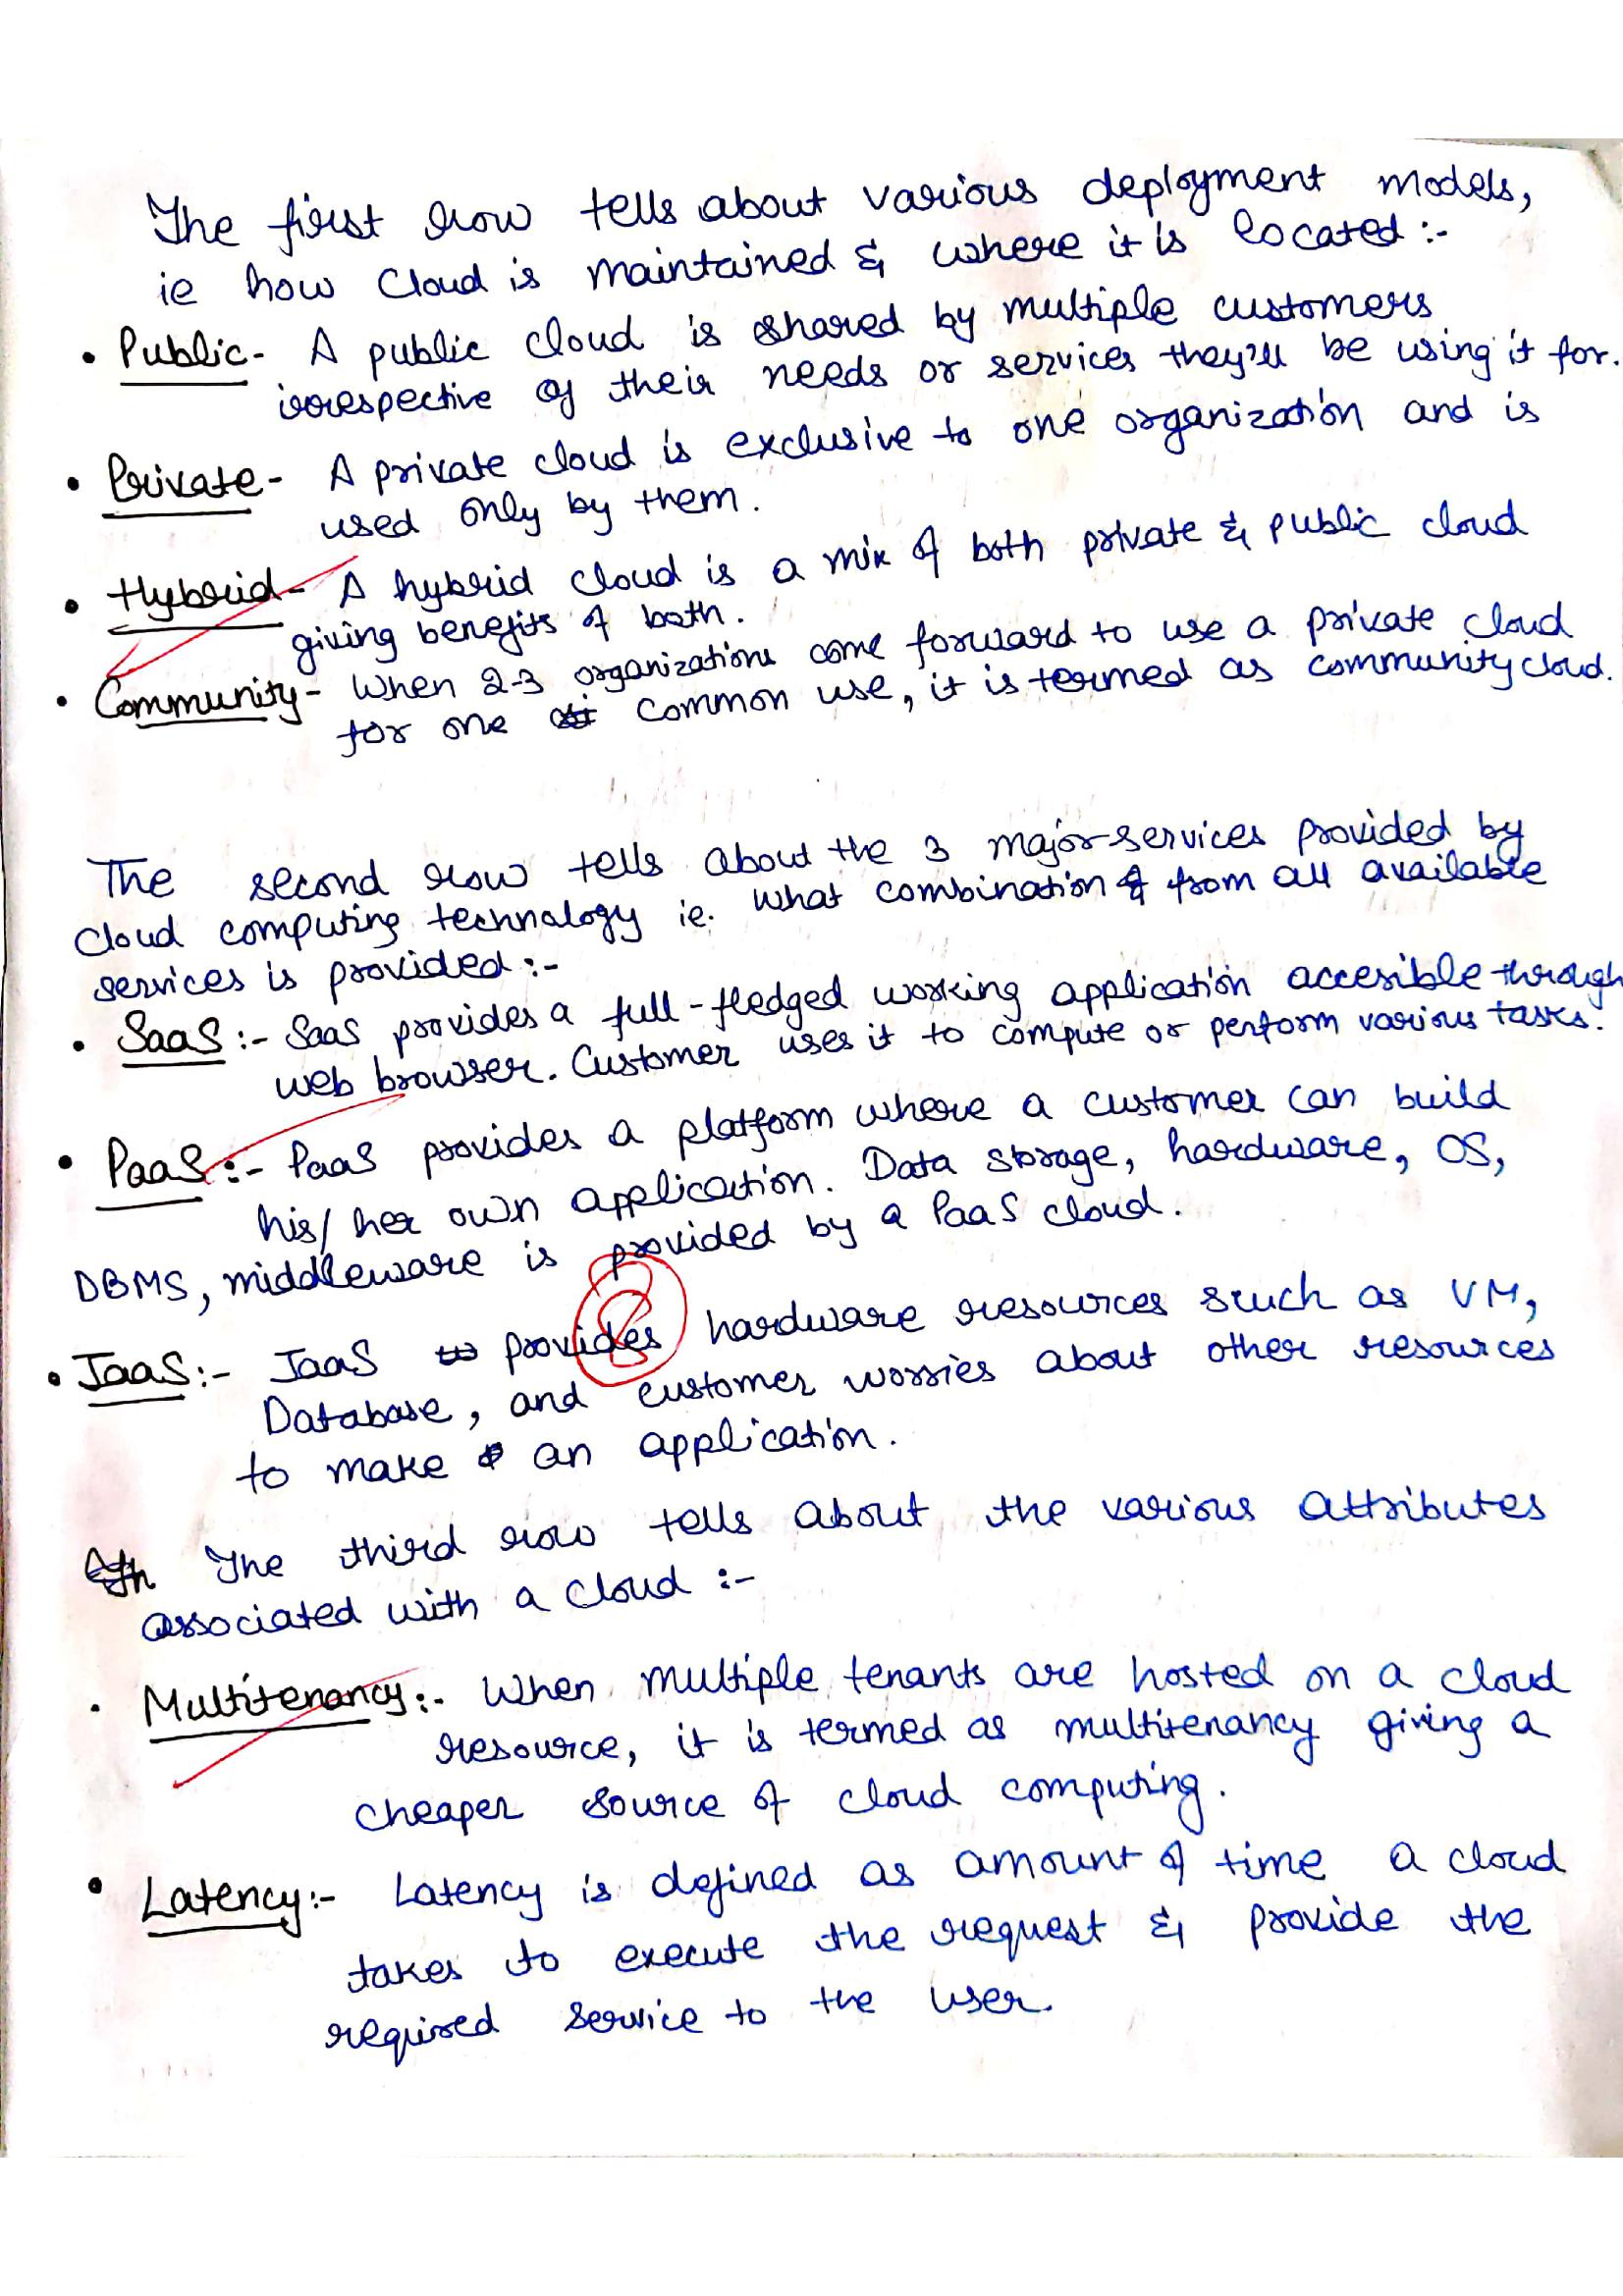 The first row tells about various deployment models,
ie how Cloud is maintained & where it is located :-
• Public- A public cloud is shared by multiple customers
irrespective of their needs or services they'll be using it for.
• Private- A private cloud is exclusive to one organization and is
used only by them.
• Hybrid- A hybrid cloud is a mix of both private & public cloud
giving benefits of both.
• Community- When 2-3 organizations come forward to use a private cloud
for one common use, it is termed as community cloud.
The second row tells about the 3 major services provided by
cloud computing technology ie. what combination from all available
services is provided :-
• SaaS :- SaaS provides a full-fledged working application accesible through
web browser. Customer uses it to compute or perform various tasks.
• PaaS :- PaaS provides a platform where a customer can build
his/her own application. Data storage, hardware, OS,
DBMS, middleware is provided by a PaaS cloud.
• IaaS :- IaaS provides hardware resources such as VM,
Database, and customer worries about other resources
to make an application.
The third row tells about the various attributes
associated with a cloud :-
• Multitenancy :- When multiple tenants are hosted on a cloud
resource, it is termed as multitenancy giving a
cheaper source of cloud computing.
• Latency :- Latency is defined as amount of time a cloud
takes to execute the request & provide the
required service to the user.